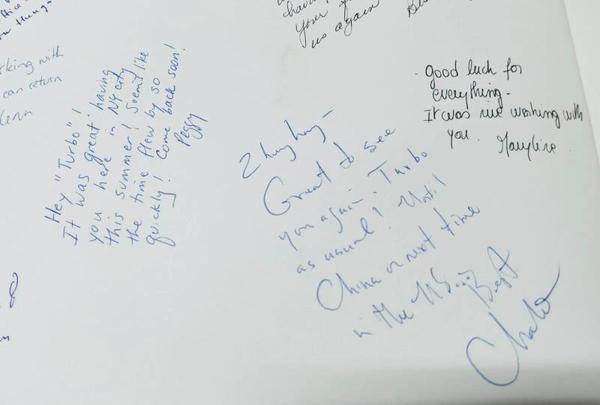 us again
rking with
can return
Hey "Turbo"!
It was great having
you here in NY city
this summer! Seems like
the time flew by so
quickly! Come back soon!
Peggy
Great to see
you again. Turbo
as usual! Until
China or next time
in the US... Best
Good luck for
everything.
It was nice working with
you.